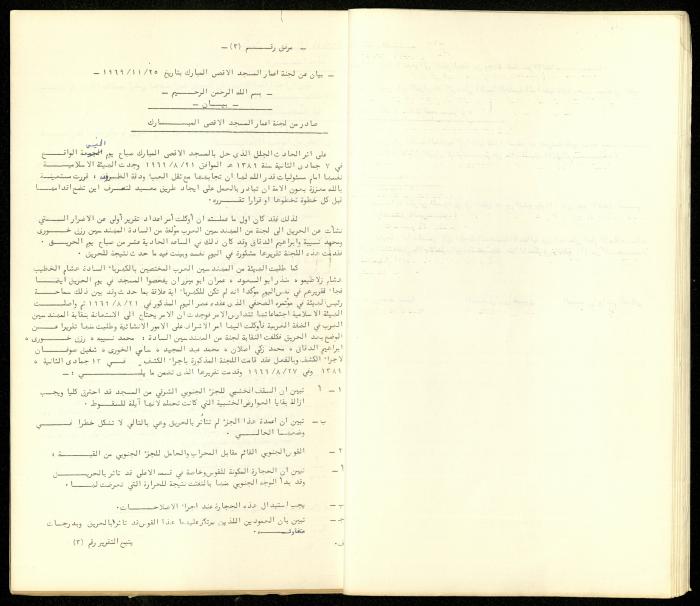 ـ مرفق رقـــــم (٣) ـ
ـ بيان عن لجنة اعمار المسجد الاقصى المبارك بتاريخ ١٩٦٩/١١/٢٥ ـ
ـ بسم الله الرحمن الرحيـــم ـ
ـ بيـــان ـ
صادر عن لجنة اعمار المسجد الاقصى المبـــــارك
على اثر الحادث الجلل الذى حل بالمسجد الاقصى المبارك صباح يوم الخميس الواقـــع
في ٧ جمادى الثانية سنة ١٣٨٩ هـ الموافق ١٩٦٩/٨/٢١ وجدت الهيئة الاسلاميـــة
نفسها امام مسئوليات قدر الله لها ان تجابهها مع ثقل العبء ودقة الظروف ، فقررت مستعينة
بالله معززة بعون الامة ان تبادر بالعمل على ايجاد طريق تتصرف اين تضع اقدامهـــا
قبل كل خطوة تخطوها او قرارا تقـــرره .
لذلك فقد كان اول ما عملته ان أوكلت أمر اعداد تقرير أولي عن الاضرار التـــي
نشأت عن الحريق الى لجنة من المهندسين العرب مؤلفة من السادة المهندسين رزق خـــورى
ومهند نسيبة وابراهيم الدقاق وقد كان ذلك في الساعة الحادية عشر من صباح يوم الحريـــق .
فقدمت هذه اللجنة تقريرها مشكورة في اليوم نفسه وبينت فيه ما حدث نتيجة للحريق .
كما طلبت الهيئة من المهندسين العرب المختصين بالكهرباء السادة هشام الخطيب
هشام زلاطيمو ، منذر ابو السعود ، عمران ابو ميزر ان يفحصوا المسجد في يوم الحريق ايضـــا
فجاء تقريرهم في نفس اليوم مؤكدا انه لم تكن للكهرباء اية علاقة بما حدث وقد بين ذلك سماحـــة
رئيس الهيئة في مؤتمره الصحفي الذى عقده عصر اليوم المذكور في ١٩٦٩/٨/٢١ ثم واصلـــت
الهيئة الاسلامية اجتماعاتها لتدارس الامر فوجدت ان الامر يحتاج الى الاستعانة بنقابة المهندسين
العرب في الضفة الغربية فأوكلت اليها امر الاشراف على الامور الانشائية وطلبت منها تقريرا عـــن
الوضع بعد الحريق فكلفت النقابة لجنة من المهندسين السادة : محمد نسيبه ، رزق خـــورى ،
ابراهيم الدقاق ، محمد زكي اصلان ، محمد عبد المجيد ، سامي الخورى ، شفيق سوفـــان
لاجراء الكشف وبالفعل فقد قامت اللجنة المذكورة باجراء الكشف في ١٣ جمادى الثانية ،
١٣٨٩ وفي ١٩٦٩/٨/٢٧ وقدمت تقريرها الذى تضمن ما يلـــــي :ـ
١ ـ أ تبين ان السقف الخشبي للجزء الجنوبي الشرقي من المسجد قد احترق كليا ويجـــب
ازالة بقايا العوارض الخشبية التي كانت تحمله لانها آيلة للسقـــوط .
ب ـ تبين ان اعمدة هذا الجزء لم تتأثر بالحريق وهي بالتالي لا تشكل خطرا فـــي
وضعهـــا الحالـــي .
٢ ـ القوس الجنوبي القائم مقابل المحراب والحامل للجزء الجنوبي من القبـــة :
أ ـ تبين ان الحجارة المكونة للقوس وخاصة في قسمه الاعلى قد تاثر بالحريـــق
وقد بدأ الوجه الجنوبي منها بالتفتت نتيجة للحرارة التي تعرضت لهـــا .
ب ـ يجب استبدال هذه الحجارة عند اجراء الاصلاحـــات .
جـ ـ تبين بان العمودين اللذين يرتكز عليهما هذا القوس قد تأثرا بالحريق وبدرجات
متفاوتـــه .
يتبع التقرير رقم (٣)